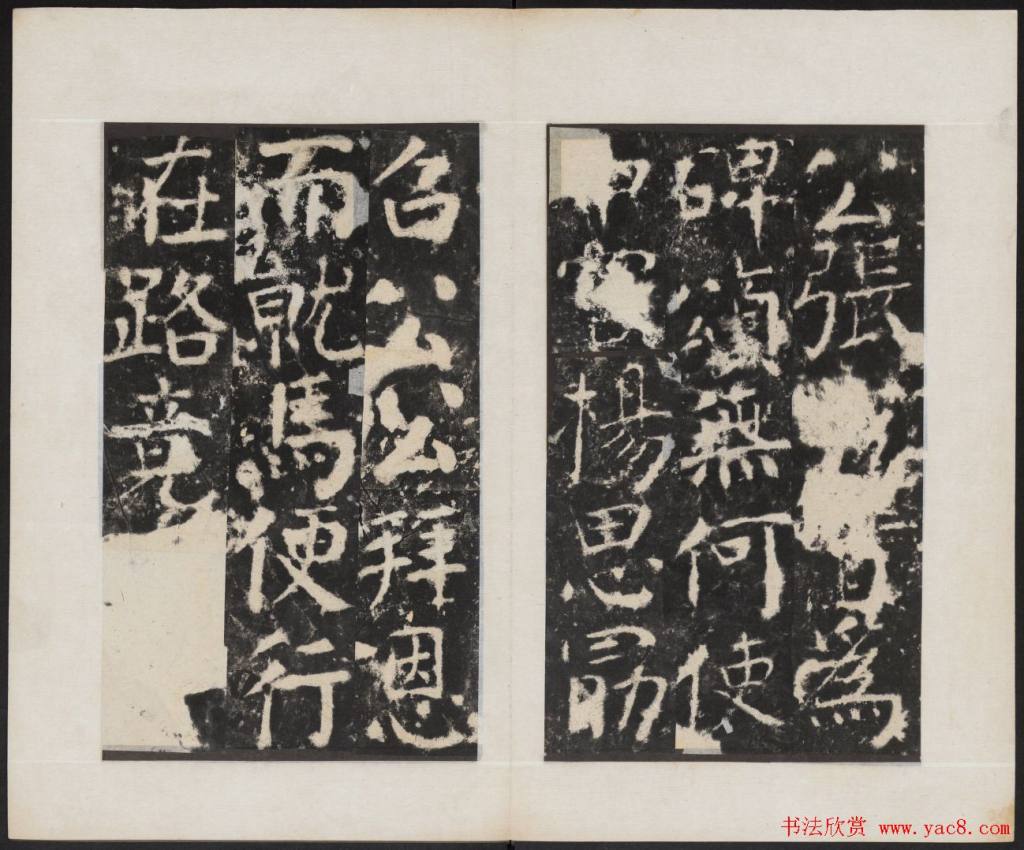 公張為
碑頌無何使
楊思勖
召公公拜恩
而就馬便行
在路竟
书法欣赏 www.yac8.com